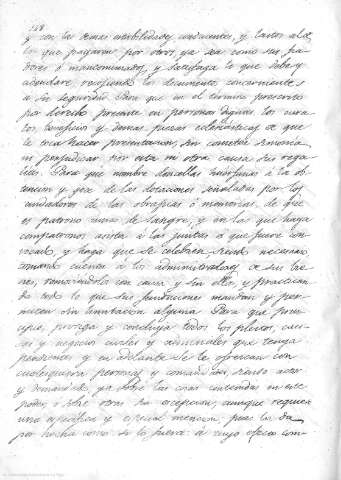 y con las demas
lo que pagaren por otros, ya sea como sus fia-
dores o mancomunados, y satisfaga lo que deba y
adeudare, recogiendo los documentos concernientes
a su seguridad. Para que en el termino prescrito
por derecho presente en personas dignas los cura-
tos, beneficios y demas piezas eclesiasticas de que
le toca hacer presentacion, sin cometer simonia
ni perjudicar por esta ni otra causa sus rega-
lias. Para que nombre doncellas huerfanas á la ob-
tencion y goce de las dotaciones señaladas por los
fundadores de las obras pias ó memorias, de que
es patrono de sangre, y en las que haya
compatronos asista á las juntas á que fuere con-
vocado, y haga que se celebren, siendo necesario
tomando cuenta á los administradores de sus bie-
nes, removiendolos con causa y sin ella, y practican-
do todo lo que sus fundaciones mandan y per-
miten sin limitacion alguna. Para que prin-
cipie, prosiga y concluya todos los pleitos, cau-
sas y negocios civiles y criminales que tenga
pendientes y en adelante se le ofrezcan con
cualesquiera personas y comunidades, siendo actor
y demandado, ya sobre las cosas contenidas en este
poder, ó sobre otras sin excepcion, aunque requiera
una especifica y especial mencion, pues la da
por hecha como si lo fuera: á cuyo efecto com-